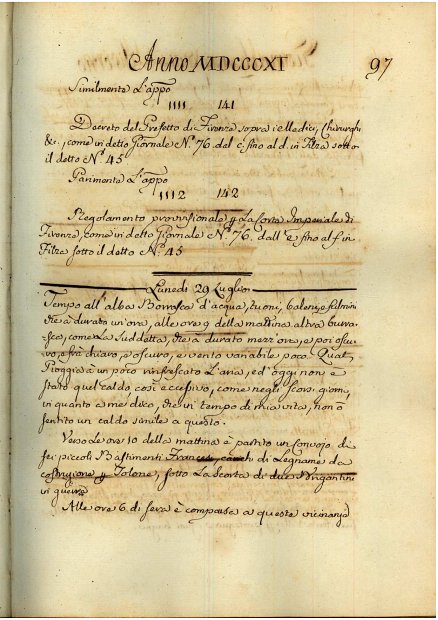 Anno MDCCCXI
97
Similmente L'appo
1111 141
Decreto del Prefetto di Firenze sopra i Medici, Chirurghi
&c., come in detto Giornale Nº. 76 dal c, fino al d. in Filza sotto
il detto Nº. 45
Parimente L'appo
1112 142
Regolamento provvisionale p. La Corte Imperiale di
Firenze, come in detto Giornale Nº. 76. dall'e fino al f in
Filza sotto il detto Nº. 45
Lunedì 29 Luglio
Tempo all'alba Borrasca d'acqua, tuoni, baleni, e fulmini
che à durato un'ora, alle ore 9 della mattina altra burra-
sca, come La Suddetta, che à durato mezz'ora, e poi oscu
ro, e frà chiaro, e oscuro, e vento variabile poco. Quest.
Pioggia à un poco rinfrescato L'aria, ed oggi non è
stato quel caldo così eccessivo, come negli scorsi giorni
in quanto a me dico, che in tempo di mia vita, non ò
sentito un caldo simile a questo.
Verso Le ore 10 della mattina è partito un Convojo di
sei piccoli Bastimenti Francesi, carichi di Legname da
costruzione p. Tolone, sotto La Scorta di due Brigantini
di guerra
Alle ore 6. di sera è comparsa a queste vicinanze